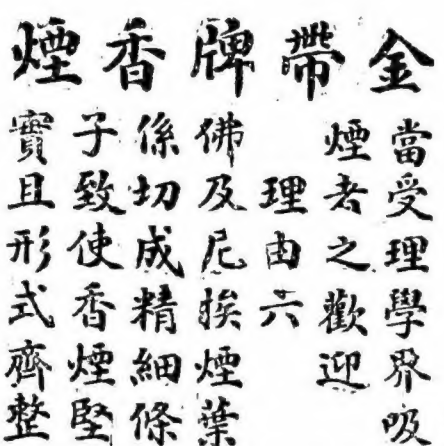 金帶牌香煙
當受理學界吸
煙者之歡迎
理由六
佛及尼挨煙葉
係切成精細條
子致使香煙堅
實且形式齊整